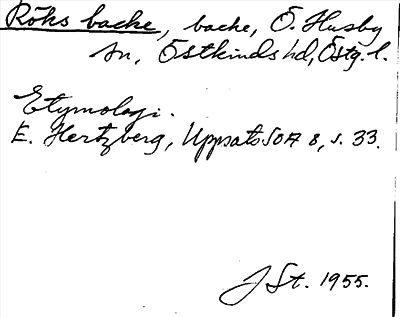 Röks backe, backe, Ö. Husby
sn, Östkinds hd, Östg. l.
Etymologi.
E. Hertzberg, Uppsats SOÄ 8, s. 33.
J St. 1955.